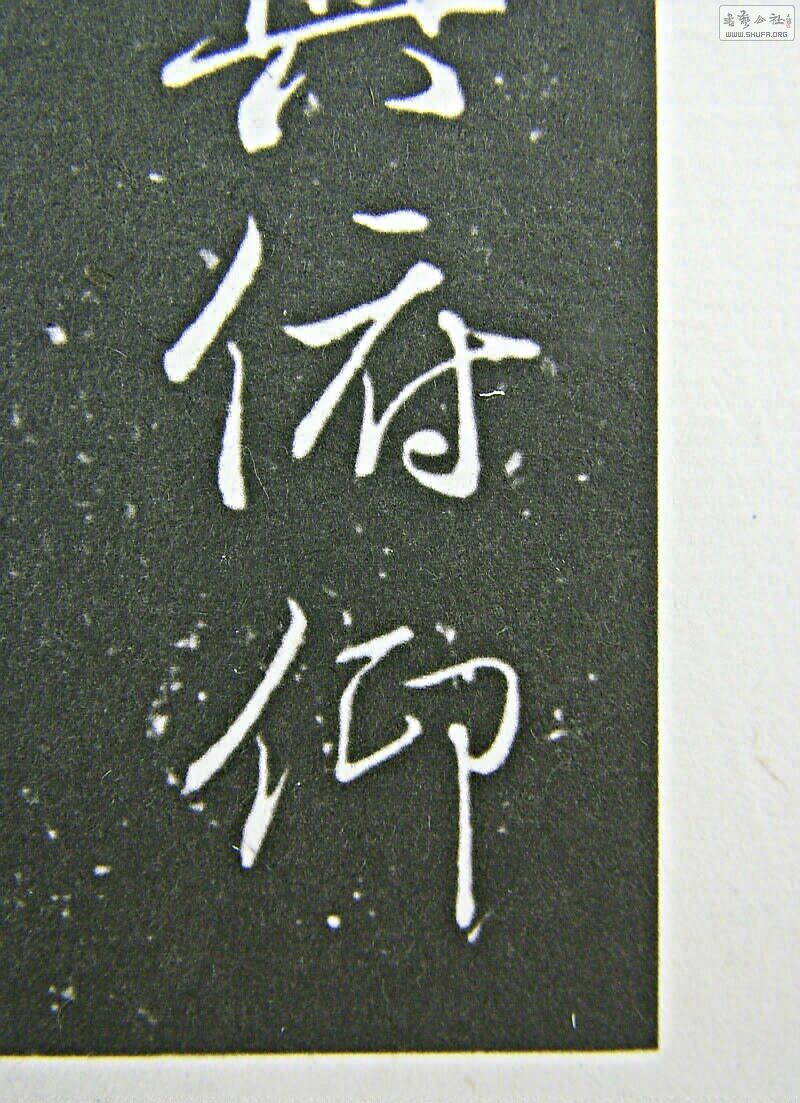 與俯仰
书艺公社
WWW.SHUFA.ORG